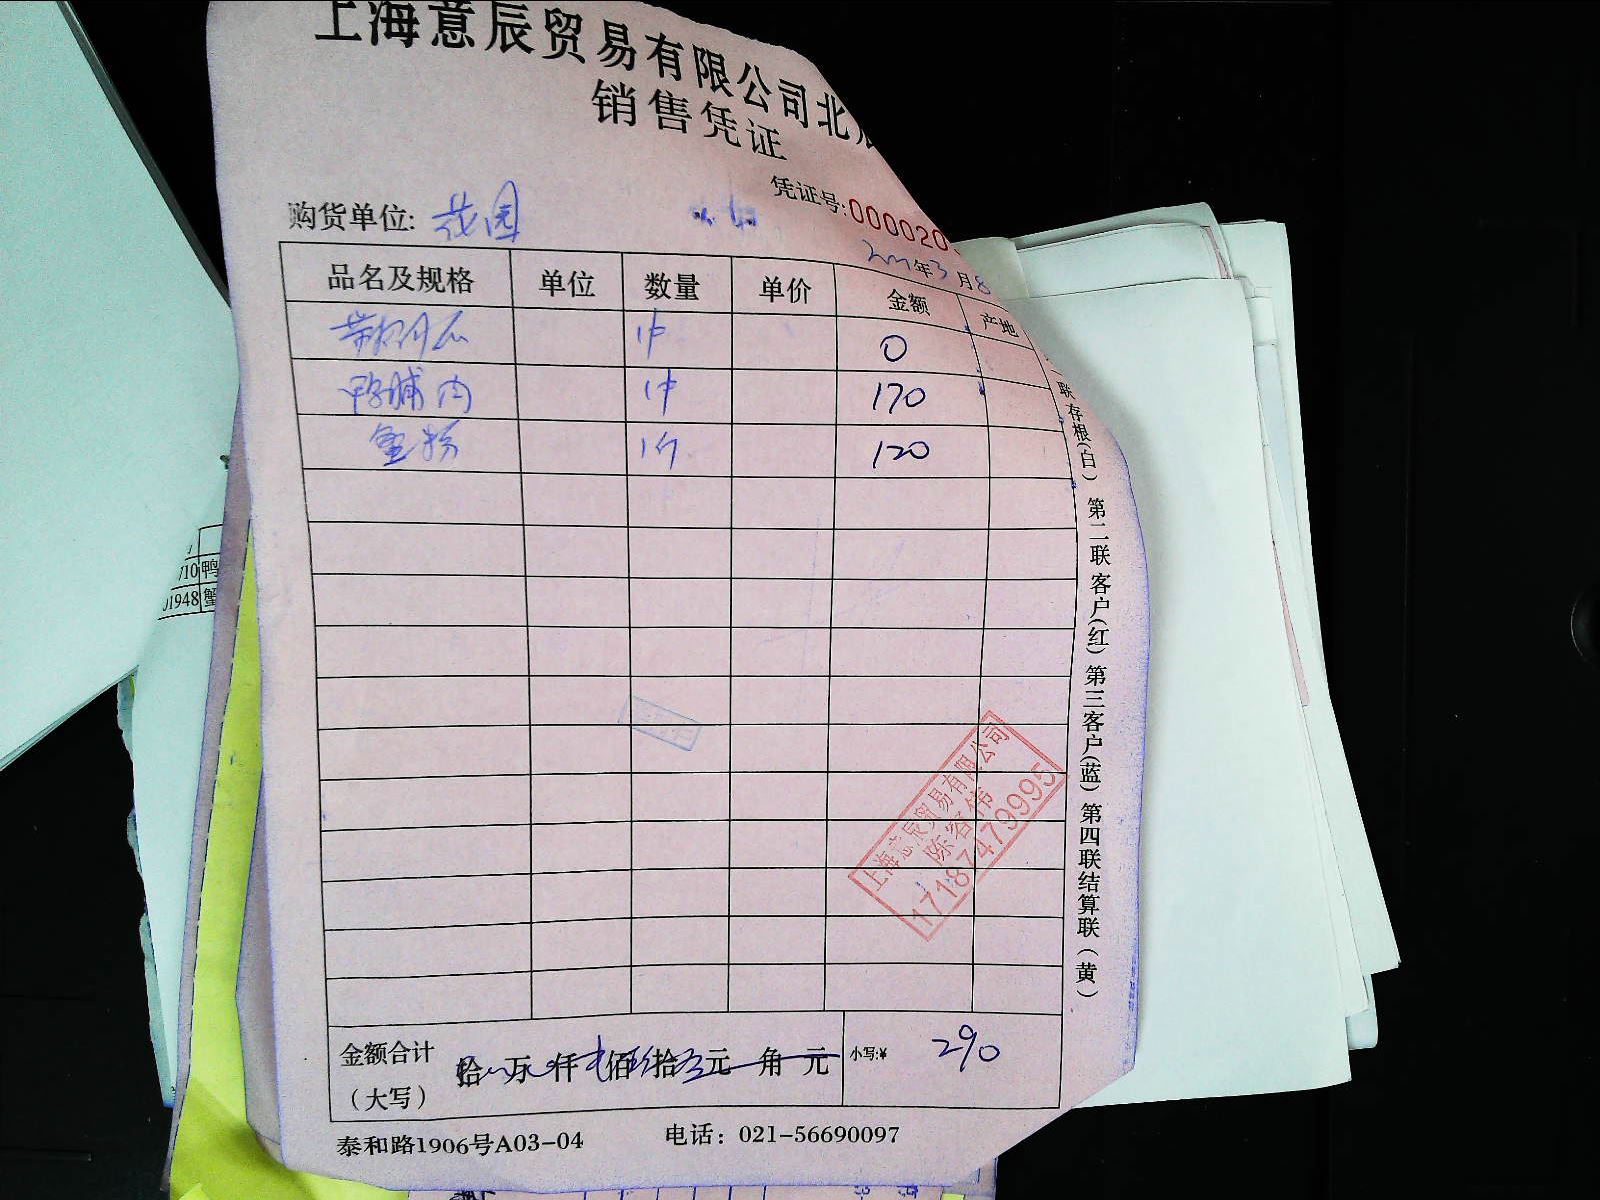 上海意辰贸易有限公司北
销售凭证
凭证号:000020
购货单位: 花园
年3月8
品名及规格 单位 数量 单价 金额 产地
1件 0
鸭脯肉 1件 170
蟹粉 1个 120
联存根(白) 第二联客户(红) 第三客户(蓝) 第四联结算联(黄)
上海意辰贸易有限公司
17187479995
金额合计
(大写)
拾 万 仟 佰 拾 元 角 元
小写:¥ 290
泰和路1906号A03-04 电话: 021-56690097
710 鸭
01948 蟹